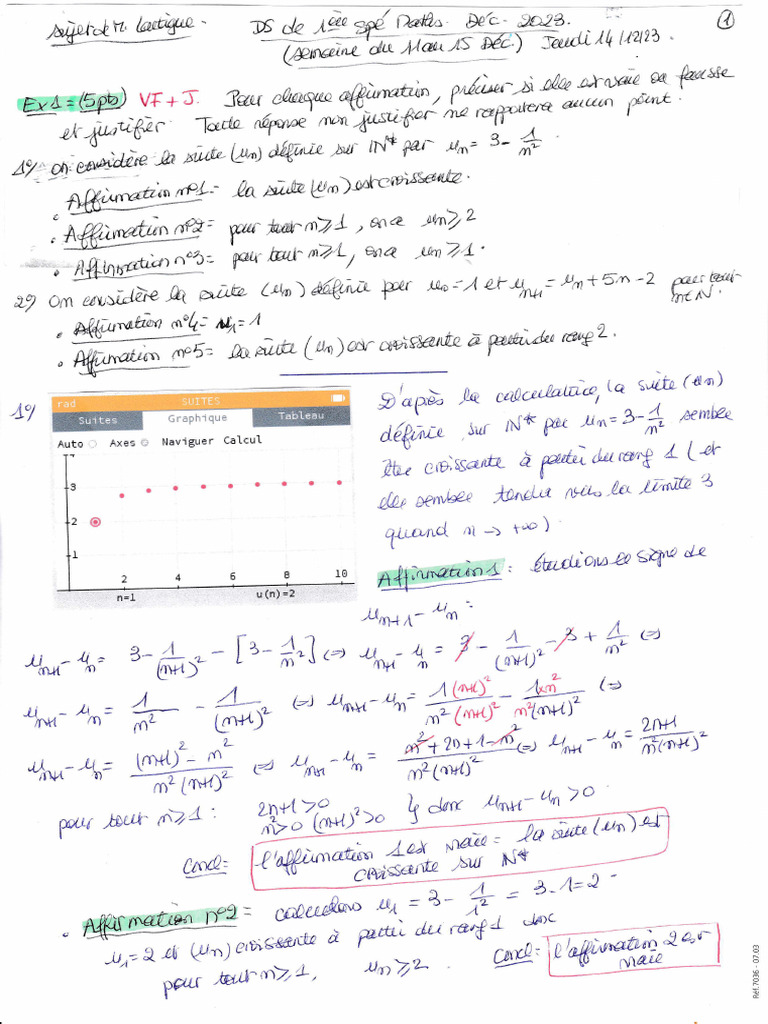 Sujet de M. Lartigue. DS de 1ère spé Maths. Déc. 2023. ①
(semaine du 11 au 15 Déc.) Jeudi 14/12/23.
Ex 1 = (5pts) VF + J. Pour chaque affirmation, préciser si elle est vraie ou fausse
et justifier. Toute réponse non justifier ne rapportera aucun point.
1°) on considère la suite (un) définie sur IN* par un = 3 - 1/n²
. Affirmation n°1 = la suite (un) est croissante.
. Affirmation n°2 = pour tout n ⩾ 1, on a un ⩾ 2
. Affirmation n°3 = pour tout n ⩾ 1, on a un ⩾ 1.
2°) On considère la suite (un) définie par u0 = 1 et un+1 = un + 5n - 2 pour tout n ∈ N.
. Affirmation n°4 = u1 = 1
. Affirmation n°5 = la suite (un) est croissante à partir du rang 2.
1°)
rad SUITES
Suites Graphique Tableau
Auto Axes Naviguer Calcul
3
2
1
2 4 6 8 10
n=1 u(n)=2
D'après la calculatrice, la suite (un)
définie sur IN* par un = 3 - 1/n² semble
être croissante à partir du rang 1 (et
elle semble tendre vers la limite 3
quand n → +∞)
Affirmation 1 : étudions le signe de
un+1 - un :
un+1 - un = 3 - 1/(n+1)² - [3 - 1/n²] ⇔ un+1 - un = 3 - 1/(n+1)² - 3 + 1/n² ⇔
un+1 - un = 1/n² - 1/(n+1)² ⇔ un+1 - un = 1(n+1)²/n²(n+1)² - 1×n²/n²(n+1)² ⇔
un+1 - un = (n+1)² - n²/n²(n+1)² ⇔ un+1 - un = n² + 2n + 1 - n²/n²(n+1)² ⇔ un+1 - un = 2n+1/n²(n+1)²
pour tout n ⩾ 1 : 2n+1 > 0
n² > 0 (n+1)² > 0 } donc un+1 - un > 0.
Concl = l'affirmation 1 est vraie = la suite (un) est
croissante sur IN*
. Affirmation n°2 = calculons u1 = 3 - 1/1² = 3 - 1 = 2 -
u1 = 2 et (un) croissante à partir du rang 1 donc
pour tout n ⩾ 1, un ⩾ 2. Concl = l'affirmation 2 est
vraie
Réf.7036 - 07.03